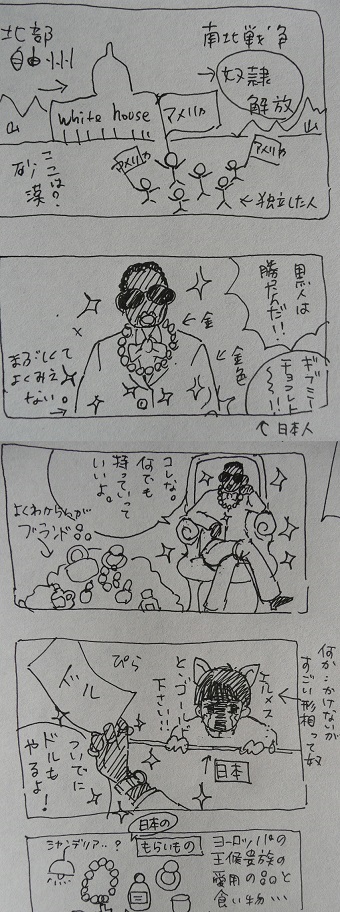 北部
自由州
→
南北戦争
→奴隷
解放
White house
アメリカ
アメリカ
アメリカ
山
山
ここは?
砂漠
←独立した人
黒人は
勝たんだ!!
←金
金色
まぶしくて
よくみえ
ない。
ギブミー
チョコレート
〜〜!!
↑日本人
コレな。
何でも
持っていって
いいよ。
よくわからんが
ブランド品
何か:かけないが
すごい形相って奴
エルメス
と、ゴールド
下さい!!
ぴら
ドル
↑
日本
ついでに
ドルも
やるよ!
日本の
もらいもの
シャンデリア‥?
ヨーロッパの
王侯貴族の
愛用の品と
食い物…